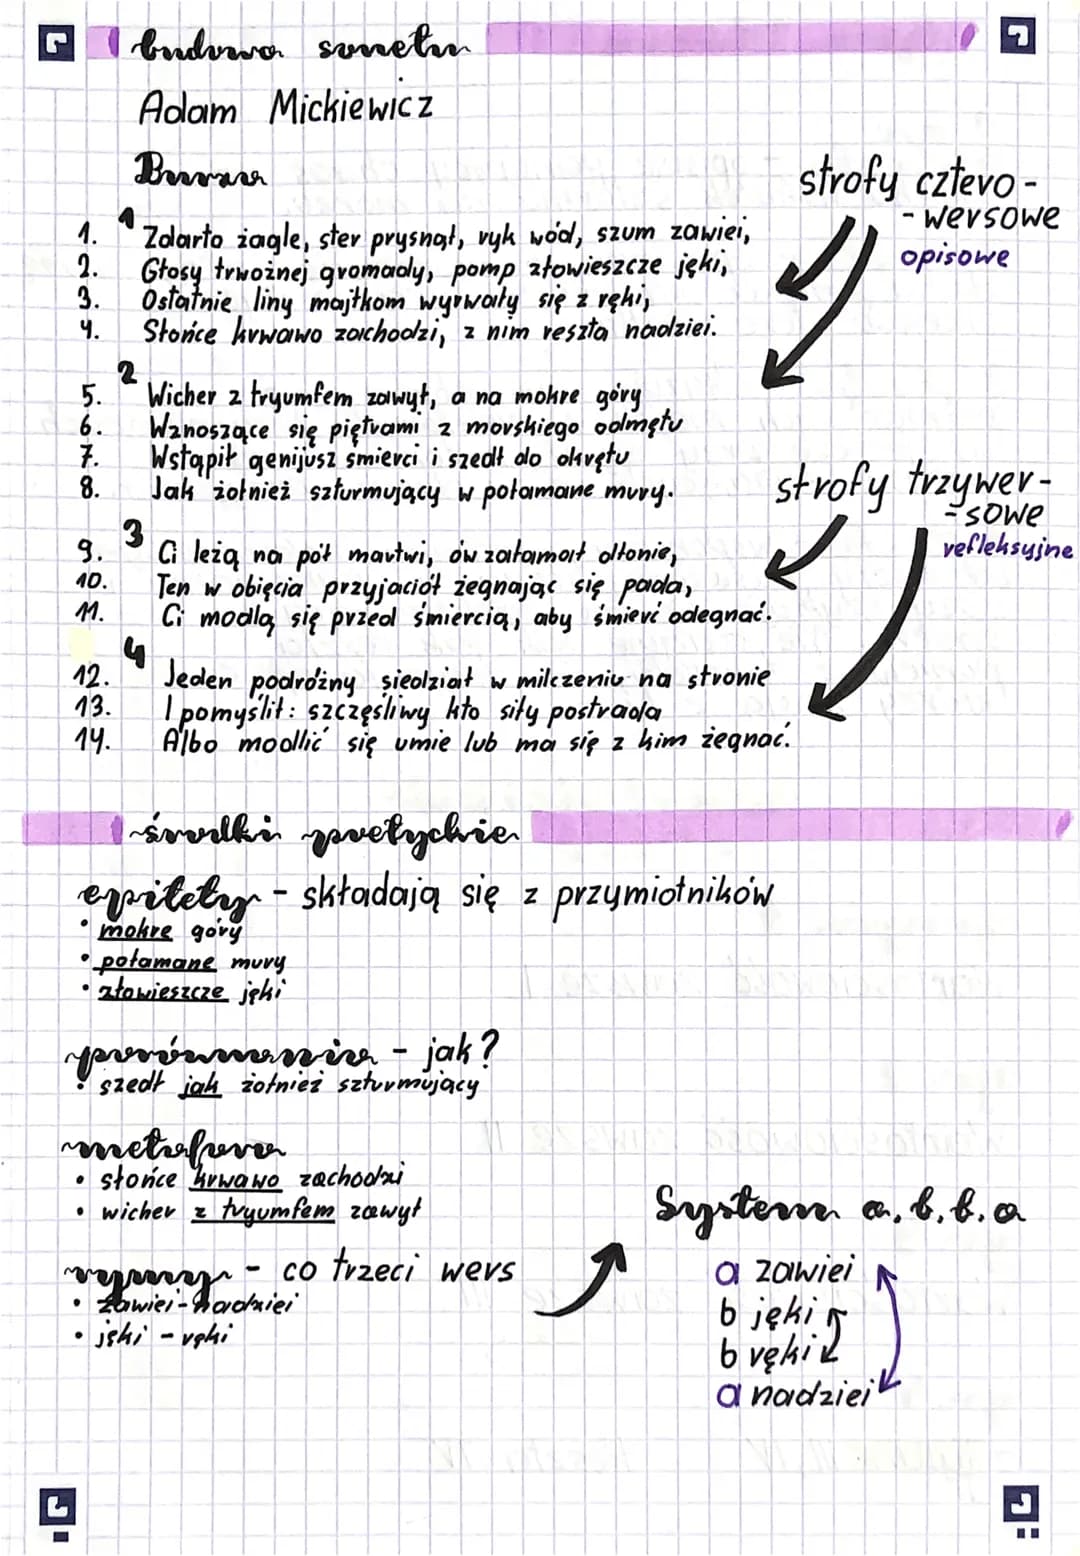 budowa sonetu
Adam Mickiewicz
Burza
strofy cztero-
-wersowe
opisowe
1
1. Zdarto żagle, ster prysnął, ryk wód, szum zawiei,
2. Głosy trwożnej gromady, pomp złowieszcze jęki,
3. Ostatnie liny majtkom wyrwały się z ręki,
4. Słońce krwawo zachodzi, z nim reszta nadziei.
2
5. Wicher z tryumfem zawył, a na mokre góry
6. Wznoszące się piętrami z morskiego odmętu
7. Wstąpił genijusz śmierci i szedł do okrętu
8. Jak żołnież szturmujący w połamane mury.
strofy trzywer-
-sowe
refleksyjne
3
9. Ci leżą na pół martwi, ów załamał dłonie,
10. Ten w obięcia przyjaciół żegnając się pada,
11. Ci modlą się przed śmiercią, aby śmierć odegnać.
4
12. Jeden podróżny siedział w milczeniu na stronie
13. I pomyślił: szczęśliwy kto siły postrada
14. Albo modlić się umie lub ma się z kim żegnać.
środki poetyckie
epitety - składają się z przymiotników
• mokre góry
• połamane mury
• złowieszcze jęki
porównania - jak?
• szedł jak żołnież szturmujący
metafora
• słońce krwawo zachodzi
• wicher z tryumfem zawył
rymy - co trzeci wers
• zawiei - nadziei
• jęki - ręki
System a, b, b, a
a zawiei
b jęki
b ręki
a nadziei